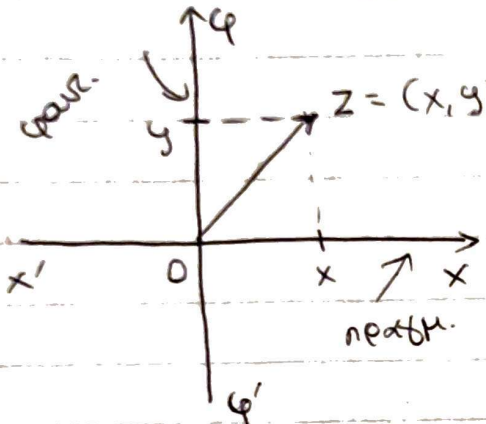 y
φαντ.
y
z = (x, y
x'
0
x
x
πραγμ.
y'